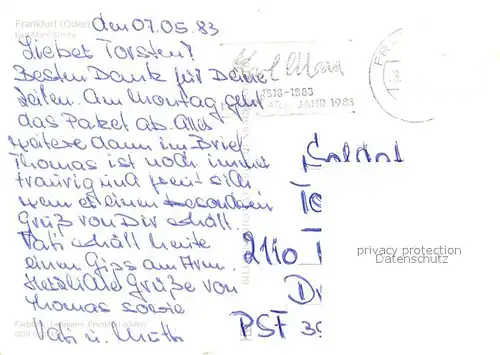 Frankfurt (Oder)
den 07.05.83
Lieber Torsten!
Besten Dank für Deine
Zeilen. Am Montag geht
das Paket ab. Alles
weitere dann im Brief.
Thomas ist noch immer
traurig und freut sich,
wenn er einen besonderen
Gruß von Dir erhält.
Vati erhält heute
einen Gips am Arm.
Herzliche Grüße von
Thomas sowie
Vati u. Mutti
Karl Marx
1818-1883
JAHR 1983
FR
Soldat
To
2110 T
privacy protection
Datenschutz
Dr
PSF 3